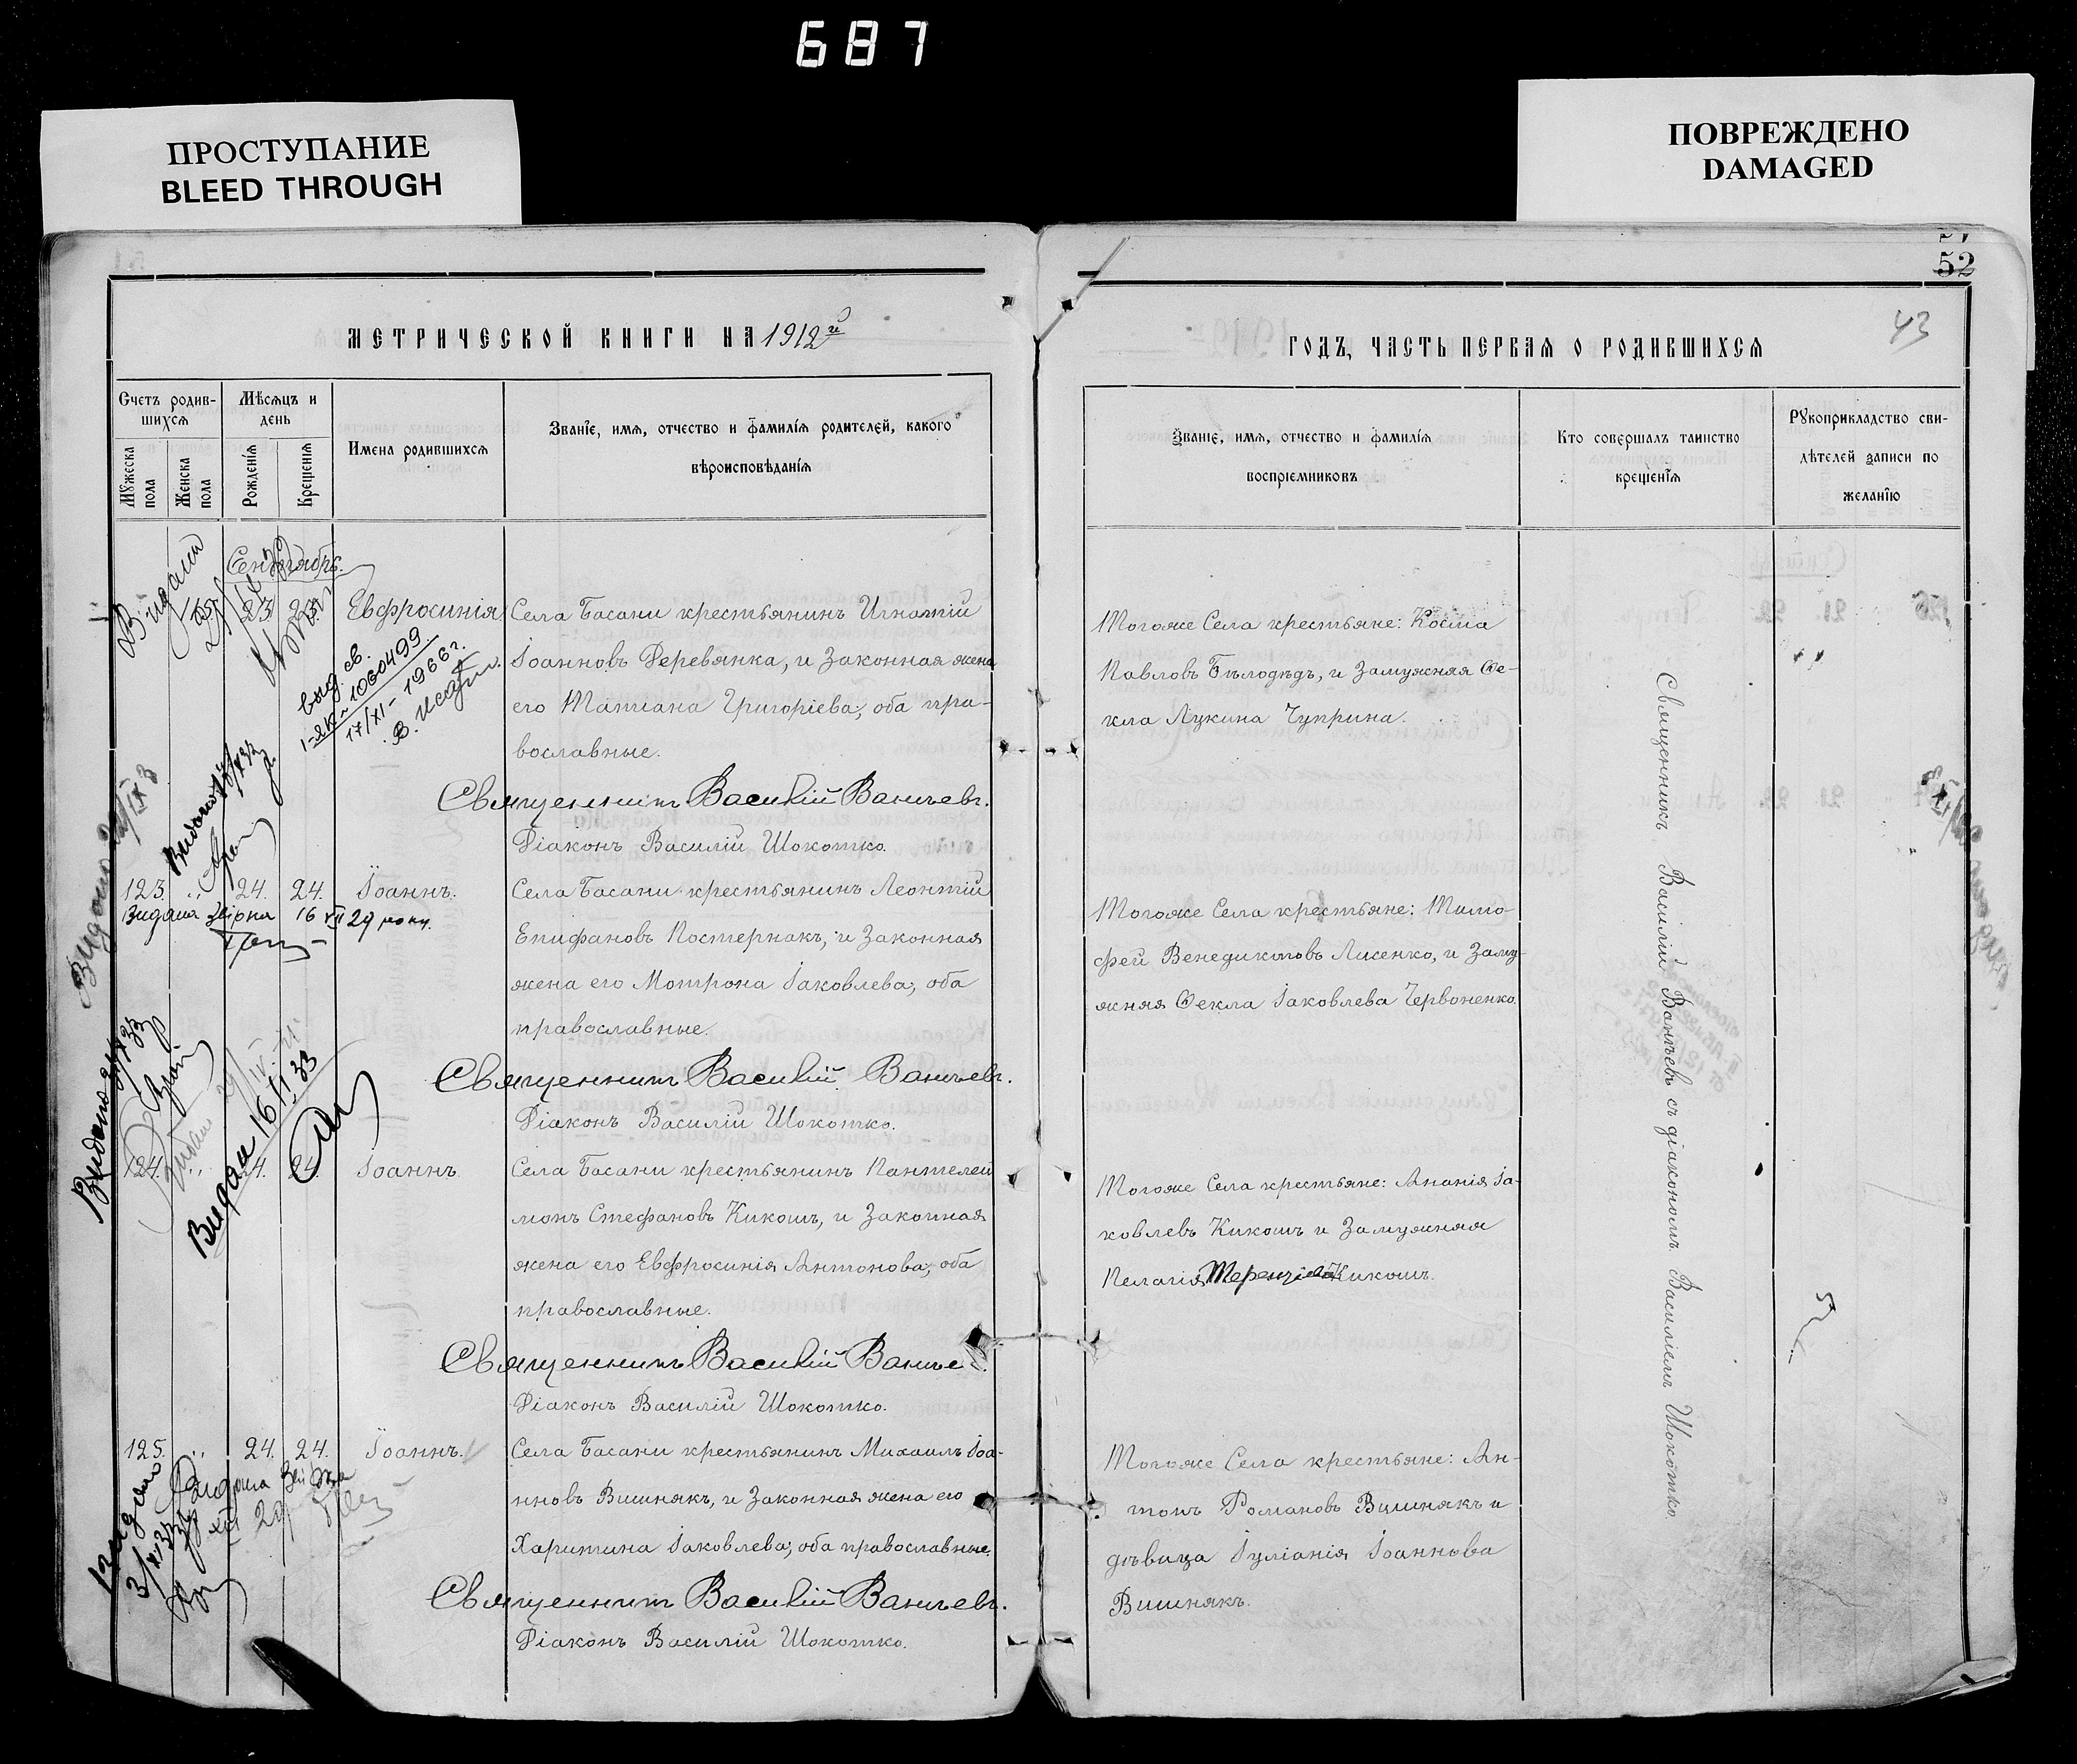 687
ПРОСТУПАНИЕ
BLEED THROUGH
ПОВРЕЖДЕНО
DAMAGED
52
43
МЕТРИЧЕСКОЙ КНИГИ НА 1912й
Счетъ родив-
шихся
Мѣсяцъ и
день
Мужеска
пола
Женска
пола
Рожденія
Крещенія
Имена родившихся
Званіе, имя, отчество и фамилія родителей, какого
вѣроисповѣданія
Сентябрь.
23
23
Евфросинія
Села Басани крестьянинъ Игнатій
Іоанновъ Деревянка, и законная жена
его Татіана Григоріева; оба пра-
вославные.
Священникъ Василій Ванчевъ.
Діаконъ Василій Шокотко.
выд. св.
1060499
17/XI-1966 г.
123. " 24. 24. Іоаннъ.
Видана 16 VII 29 року.
Села Басани крестьянинъ Леонтій
Епифановъ Постернакъ, и законная
жена его Мотрона Іаковлева; оба
православные.
Священникъ Василій Ванчевъ.
Діаконъ Василій Шокотко.
Видан 16/I 33
124. " 24. 24. Іоаннъ
Села Басани крестьянинъ Пантелеи
монъ Стефановъ Кикошъ, и законная
жена его Евфросинія Антонова; оба
православные.
Священникъ Василій Ванчевъ.
Діаконъ Василій Шокотко.
125. " 24. 24. Іоаннъ.
Села Басани крестьянинъ Михаилъ Іоа-
нновъ Вишнякъ, и законная жена его
Харитина Іаковлева; оба православные.
Священникъ Василій Ванчевъ.
Діаконъ Василій Шокотко.
ГОДЪ, ЧАСТЬ ПЕРВАЯ О РОДИВШИХСЯ
Званіе, имя, отчество и фамилія
воспріемниковъ
Кто совершалъ таинство
крещенія
Рукоприкладство сви-
дѣтелей записи по
желанію
Тогоже Села крестьяне: Косма
Павловъ Бѣлодѣдъ, и замужняя Ѳе-
кла Лукина Чуприна.
Тогоже Села крестьяне: Тимо-
фей Венедиктовъ Лисенко, и заму-
жняя Ѳекла Іаковлева Червоненко.
Тогоже Села крестьяне: Ананія Іа-
ковлевъ Кикошъ и замужняя
Пелагія Терентіева Кикошъ.
Тогоже Села крестьяне: Ан-
тонъ Романовъ Вишнякъ и
дѣвица Іуліанія Іоаннова
Вишнякъ.
Священникъ Василій Ванчевъ съ діакономъ Василіемъ Шокотко.